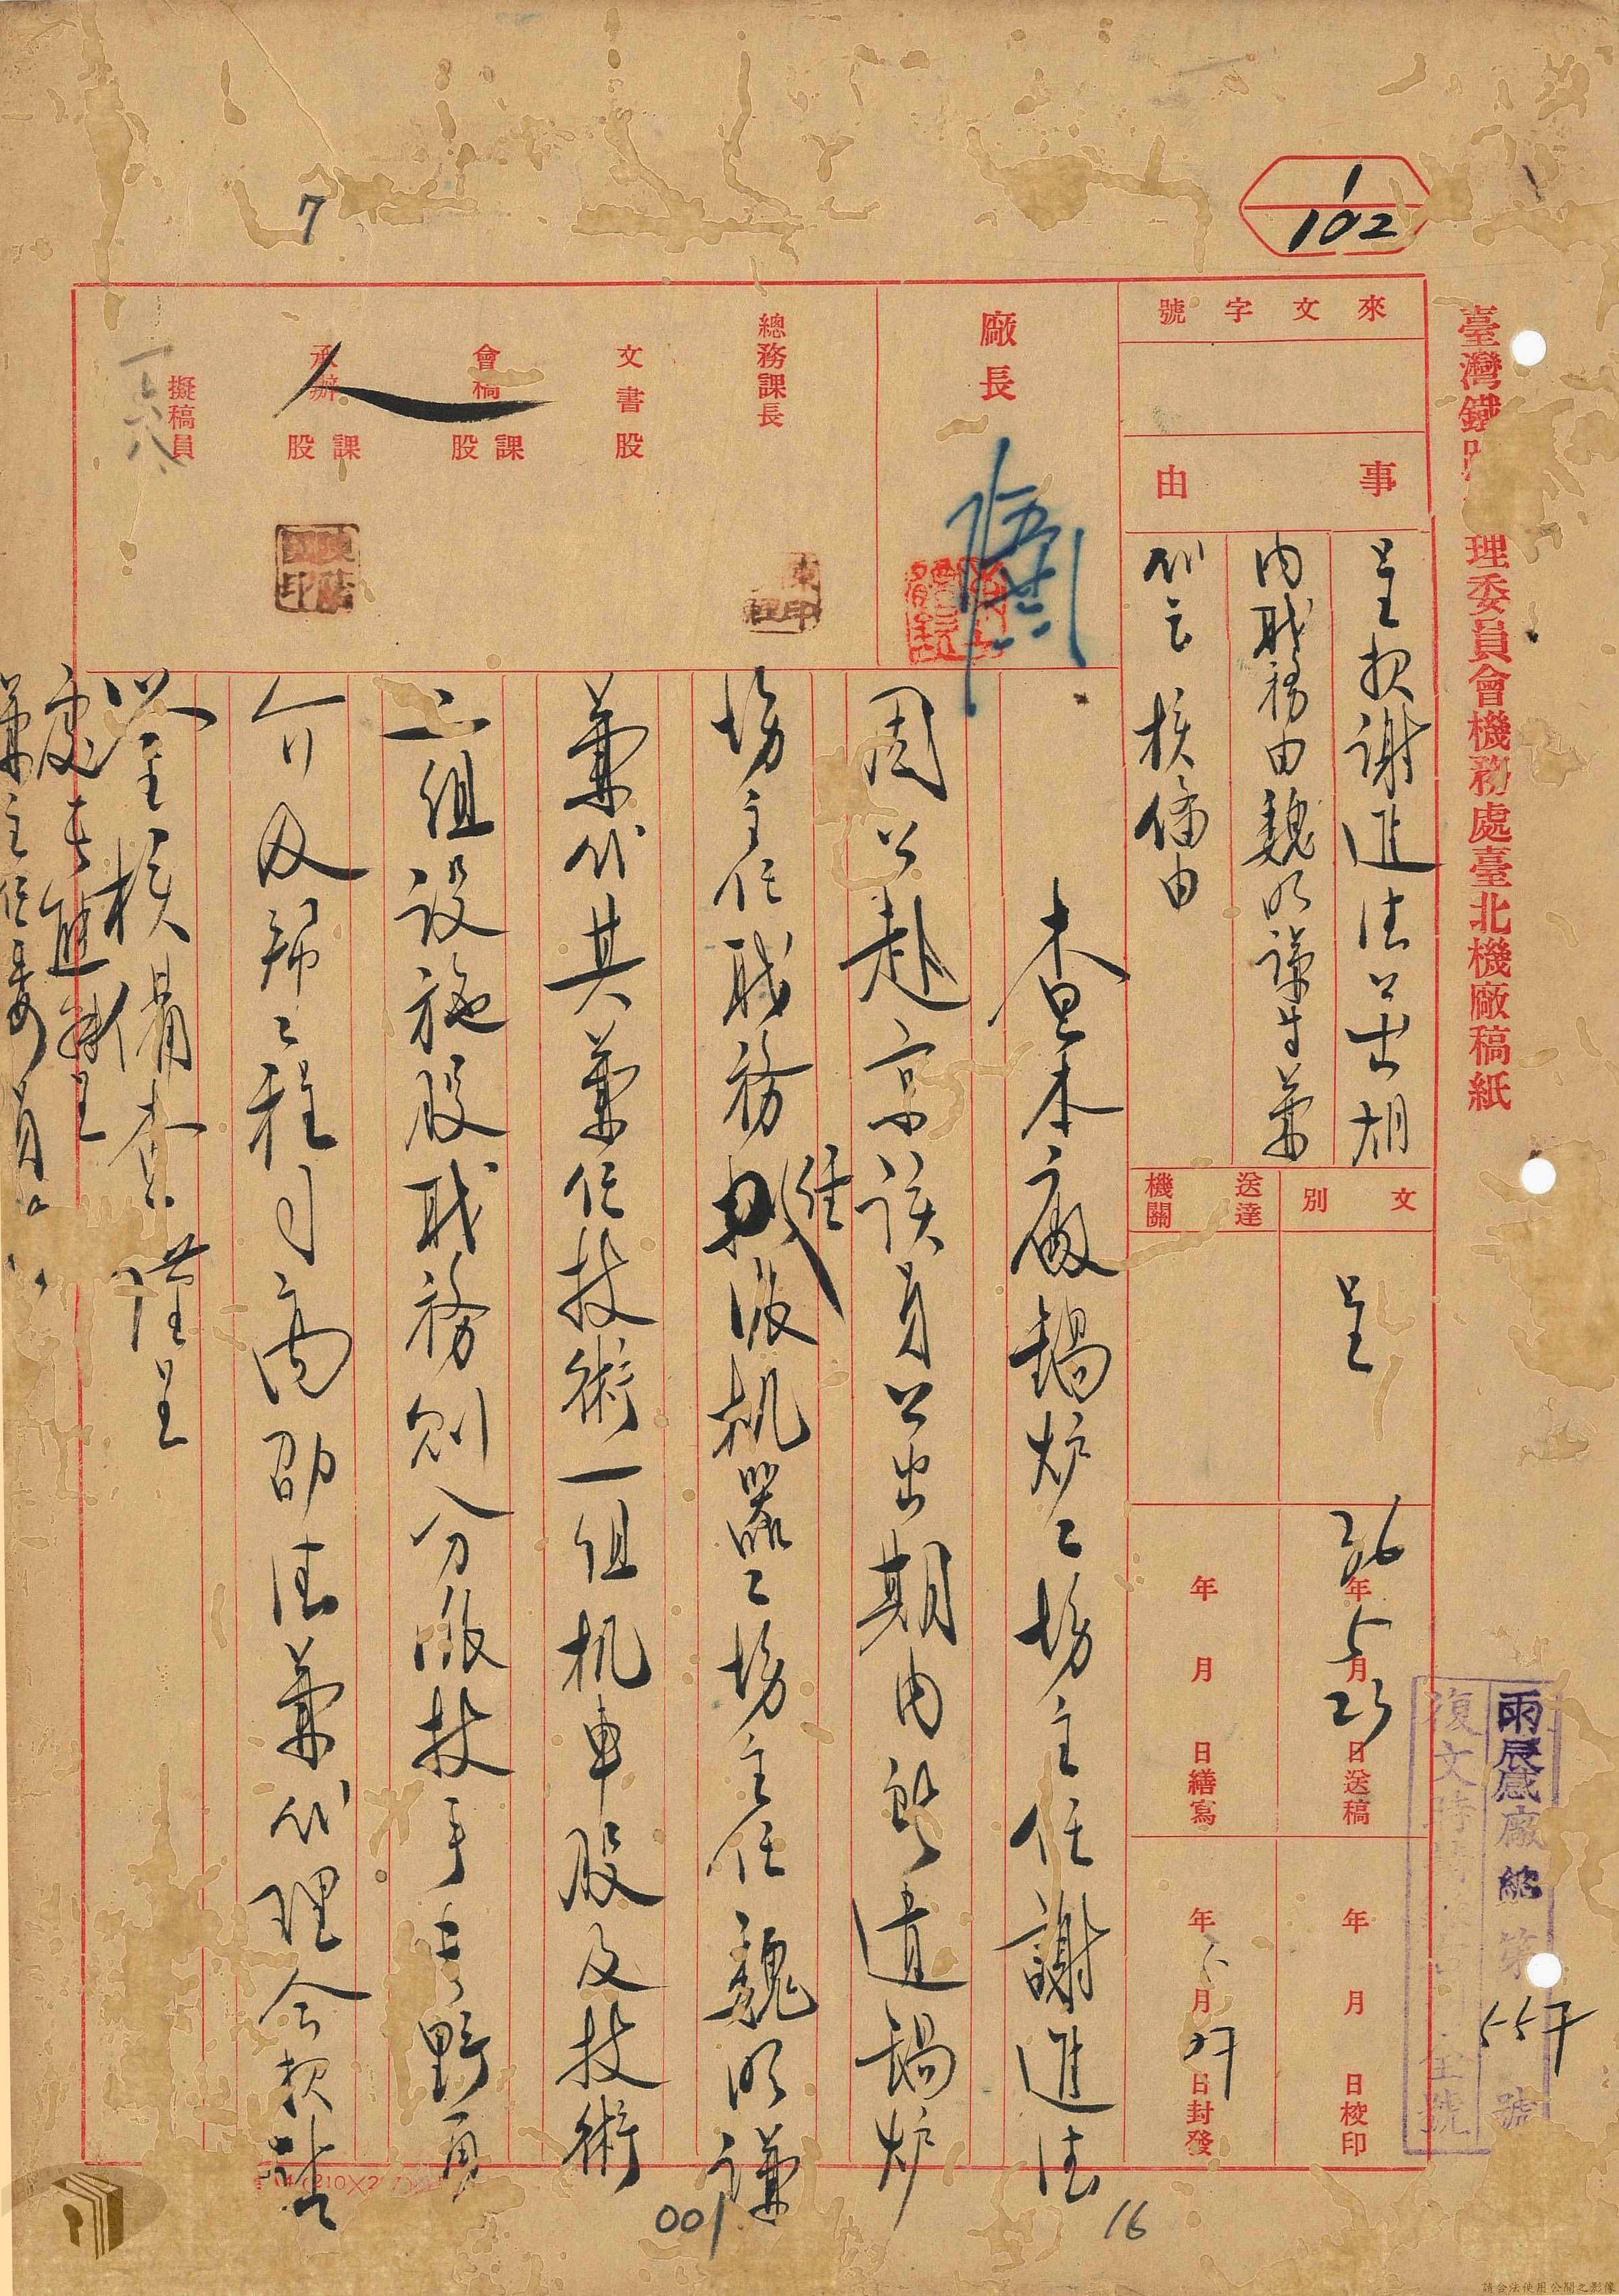 1
102
7
臺灣鐵 理委員會機務處臺北機廠稿紙
來文字號
事由
呈報謝進法公出期
內職務由魏明謙等兼
代乞 核備由
文別
呈
送達機關
36年5月23日送稿
年 月 日繕寫
年 月 日校印
年5月27日封發
雨辰感廠總第557號
復文時
廠長
總務課長
文書股
會稿 課 股
承辦 課 股
擬稿員
查本廠鍋爐工場主任謝進法
因公赴京該員公出期內所遺鍋爐
場主任職務 派机器工場主任魏明謙
兼代其兼任技術一組机車股及技術
二組設施股職務則分派技手
及幫工程司高 法兼代理合報請
鑒核備查 謹呈
處長
兼主任委員
001
16
請合法使用公開之影像